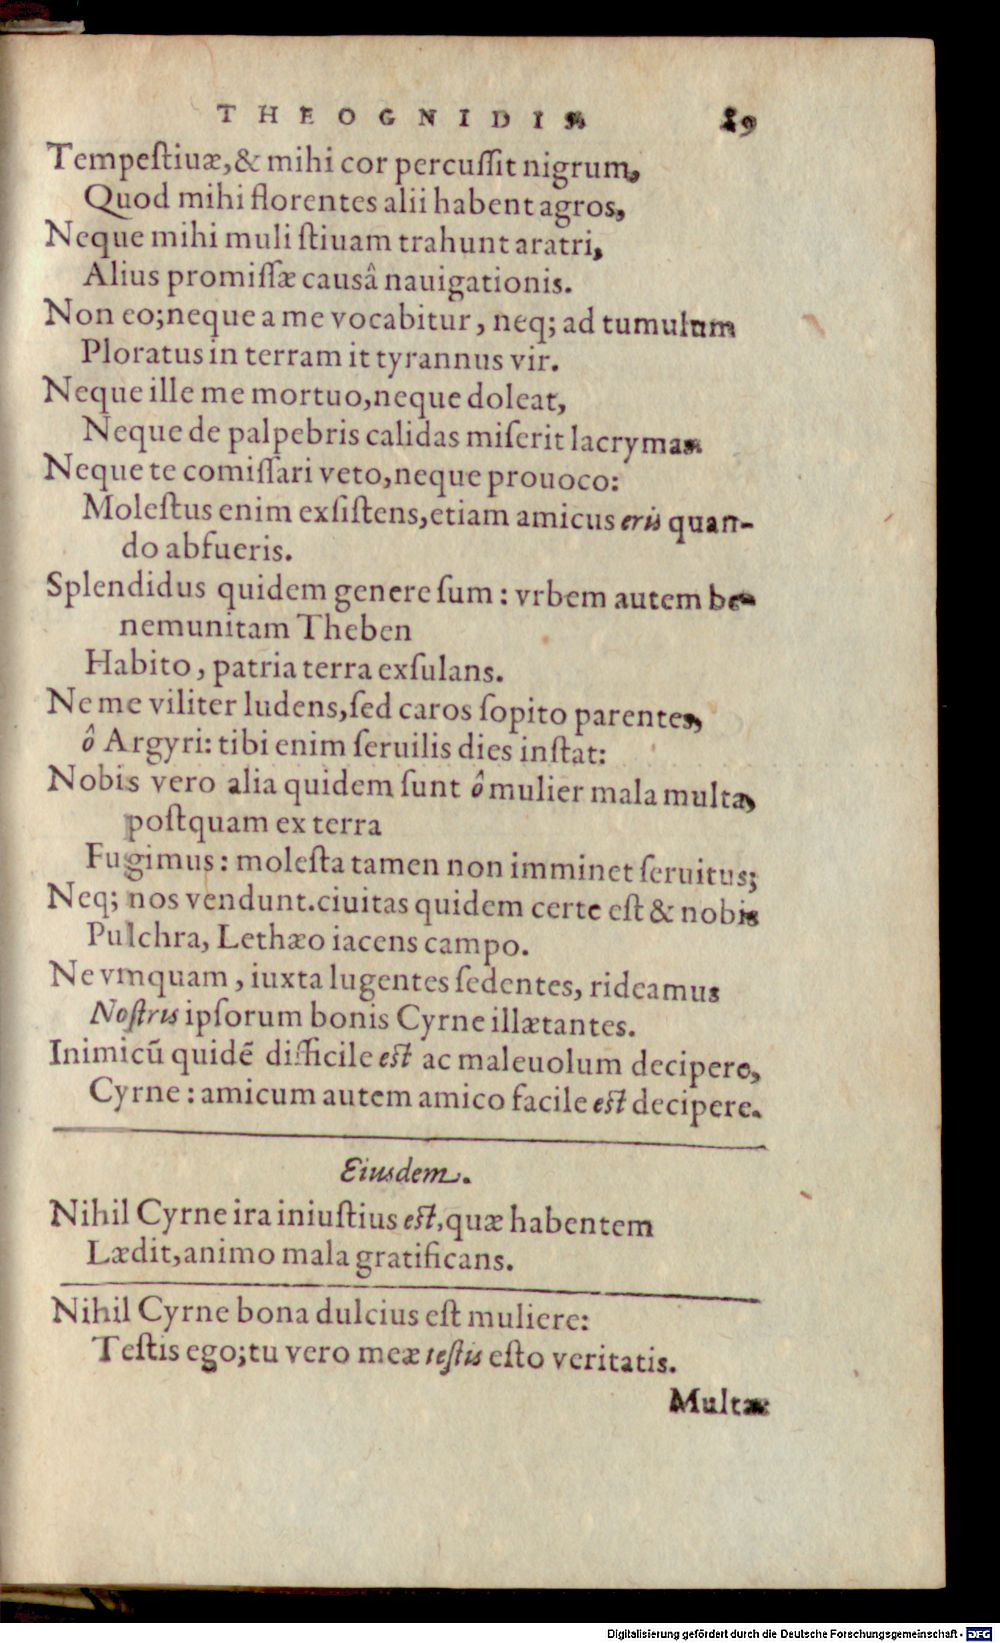 THEOGNIDIS 89
Tempeſtiuæ,& mihi cor percuſſit nigrum,
Quod mihi florentes alii habent agros,
Neque mihi muli ſtiuam trahunt aratri,
Alius promiſſæ causâ nauigationis.
Non eo;neque a me vocabitur, neq; ad tumulum
Ploratus in terram it tyrannus vir.
Neque ille me mortuo,neque doleat,
Neque de palpebris calidas miſerit lacrymas.
Neque te comiſſari veto,neque prouoco:
Moleſtus enim exſiſtens,etiam amicus eris quan-
do abfueris.
Splendidus quidem genere ſum: vrbem autem be-
nemunitam Theben
Habito, patria terra exſulans.
Ne me viliter ludens,ſed caros ſopito parentes,
ô Argyri: tibi enim ſeruilis dies inſtat:
Nobis vero alia quidem ſunt ô mulier mala multa,
poſtquam ex terra
Fugimus: moleſta tamen non imminet ſeruitus;
Neq; nos vendunt.ciuitas quidem certe eſt & nobis
Pulchra, Lethæo iacens campo.
Ne vmquam, iuxta lugentes ſedentes, rideamus
Noſtris ipſorum bonis Cyrne illætantes.
Inimicū quidē difficile eſt ac maleuolum decipere,
Cyrne: amicum autem amico facile eſt decipere.
Eiusdem.
Nihil Cyrne ira iniuſtius eſt,quæ habentem
Lædit,animo mala gratificans.
Nihil Cyrne bona dulcius eſt muliere:
Teſtis ego;tu vero meæ teſtis eſto veritatis.
Multæ
Digitalisierung gefördert durch die Deutsche Forschungsgemeinschaft - DFG